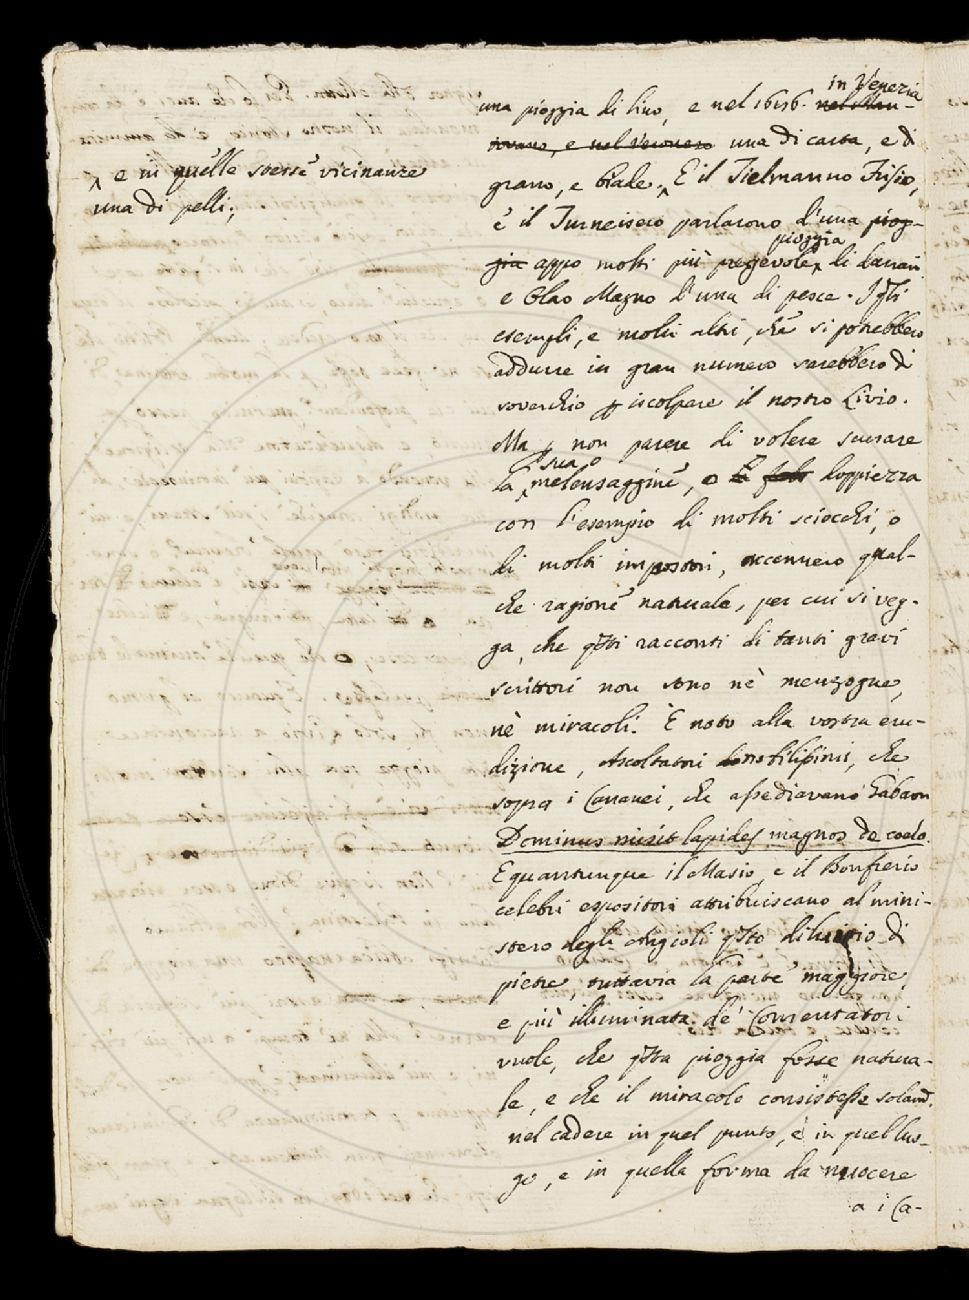 ^ e in quelle stesse vicinanze
una di pelli;
in Venezia
una pioggia di lino, e nel 1616. nel Man-
tovano, e nel Veronese una di carta, e di
grano, e biade.^ E il Tielmanno Frisio,
e il Turneisero parlarono d'una piog-
pioggia
gia appo molti più pregevole^ di danari
e Olao Magno d'una di pesce. I qsti
esempli, e molti altri, che si potrebbero
addurre in gran numero sarebbero di
soverchio p iscolpare il nostro Livio.
Ma p non parere di volere scusare
sua
la ^ melensaggine, o doppiezza
con l'esempio di molti sciocchi, o
di molti impostori, accennero qual-
che ragione naturale, per cui si veg-
ga, che qsti racconti di tanti gravi
scrittori non sono nè menzogne,
nè miracoli. È noto alla vostra eru-
dizione, Ascoltatori che
sopra i Cananei, che assediavano Gabaon
Dominus misit lapides magnos de coelo.
E quantunque il Masio, e il Bonfrerio
celebri espositori attribuiscano al mini-
stero degli Angioli qsto diluvio di
pietre, tuttavia la parte maggiore,
e più illuminata de' Comentatori
vuole, che qsta pioggia fosse natura-
le, e che il miracolo consistesse solam.
nel cadere in quel punto, e in quel luo-
go, e in quella forma da nuocere
a i Ca-